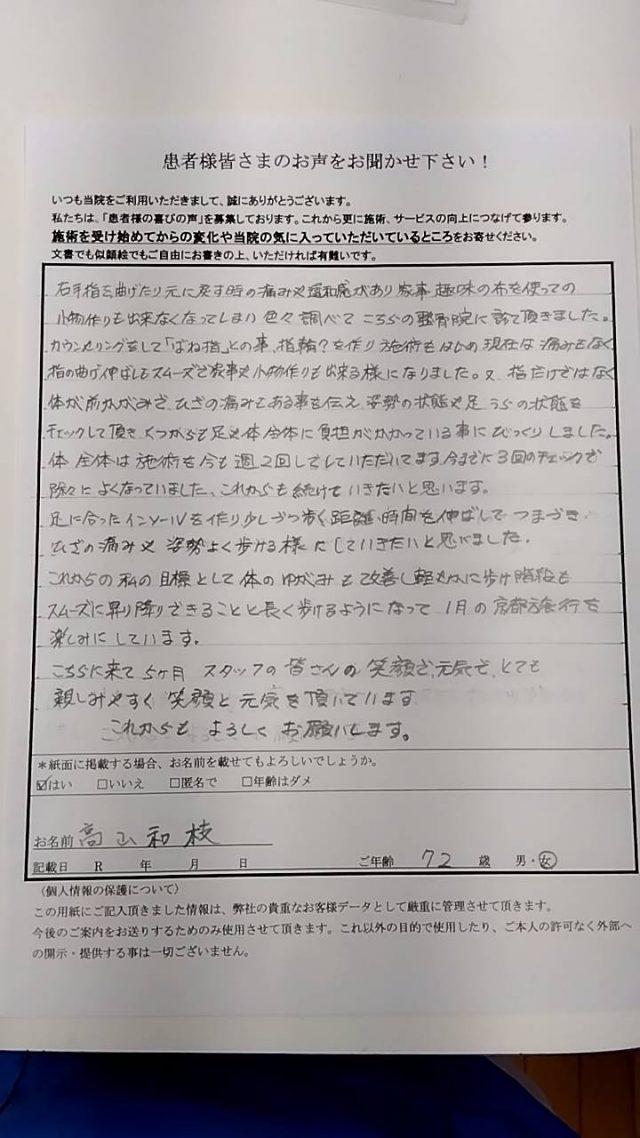 患者様皆さまのお声をお聞かせ下さい！
いつも当院をご利用いただきまして、誠にありがとうございます。
私たちは、「患者様の喜びの声」を募集しております。これから更に施術、サービスの向上につなげて参ります。
施術を受け始めてからの変化や当院の気に入っていただいているところをお寄せください。
文書でも似顔絵でもご自由にお書きの上、いただければ有難いです。
右手指を曲げたり元に戻す時の痛みや違和感があり家事、趣味の布を使っての
小物作りも出来なくなってしまい色々調べてこちらの整骨院に診て頂きました。
カウンセリングをして「ばね指」との事、指輪?を作り施術もはじめ現在は痛みもなく
指の曲げ伸ばしもスムーズで家事や小物作りも出来る様になりました。又、指だけではなく
体が前かがみで、ひざの痛みもある事を伝え姿勢の状態や足うらの状態を
チェックして頂きくつからも足や体全体に負担がかかっている事にびっくりしました。
体全体は施術を今も週2回してしていただいてます今までに3回のチェックで
除々によくなっていました、これからも続けていきたいと思います。
足に合ったインソールを作り少しづつ歩く距離、時間を伸ばしてつまづき、
ひざの痛みや姿勢よく歩ける様にしていきたいと思いました。
これからの私の目標として体のゆがみも改善し軽やかに歩け階段も
スムーズに昇り降りできることと長く歩けるようになって1月の京都旅行を
楽しみにしています。
こちらに来て5ヶ月 スタッフの皆さんの笑顔で、元気で、とても
親しみやすく笑顔と元気を頂いています
これからもよろしくお願いします。
＊紙面に掲載する場合、お名前を載せてもよろしいでしょうか。
☑はい □いいえ □匿名で □年齢はダメ
お名前 高山和枝
記載日 R 年 月 日 ご年齢 72 歳 男・女
〈個人情報の保護について〉
この用紙にご記入頂きました情報は、弊社の貴重なお客様データとして厳重に管理させて頂きます。
今後のご案内をお送りするためのみ使用させて頂きます。これ以外の目的で使用したり、ご本人の許可なく外部へ
の開示・提供する事は一切ございません。